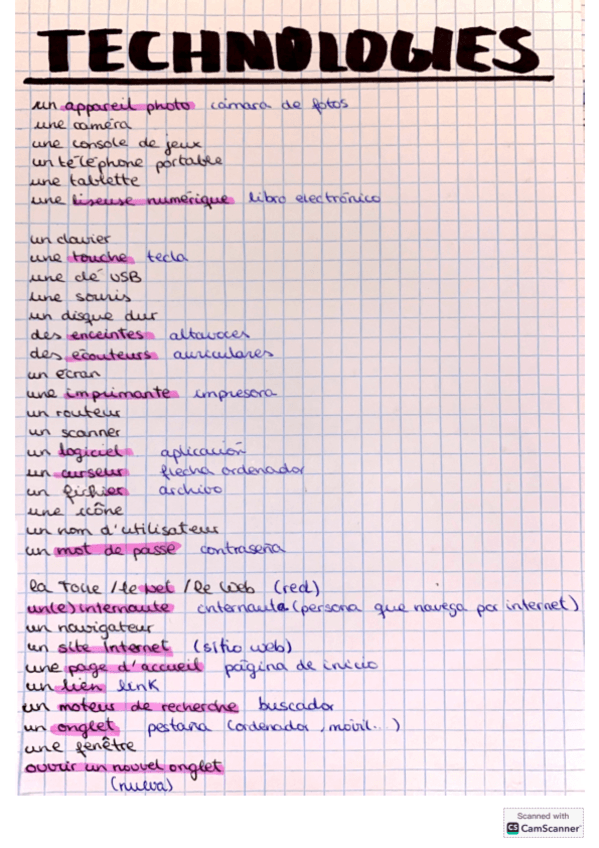 TECHNOLOGIES
un appareil photo cámara de fotos
une caméra
une console de jeux
un téléphone portable
une tablette
une liseuse numérique libro electrónico
un clavier
une touche tecla
une clé USB
une souris
un disque dur
des enceintes altavoces
des écouteurs auriculares
un écran
une imprimante impresora
un routeur
un scanner
un logiciel aplicación
un curseur flecha ordenador
un fichier archivo
une icône
un nom d'utilisateur
un mot de passe contraseña
la Toile / le net / le Web (red)
un(e) internaute internauta (persona que navega por internet)
un navigateur
un site Internet (sitio web)
une page d'accueil página de inicio
un lien link
un moteur de recherche buscador
un onglet pestaña (ordenador, móvil...)
une fenêtre
ouvrir un nouvel onglet
(nueva)
Scanned with
CS CamScanner